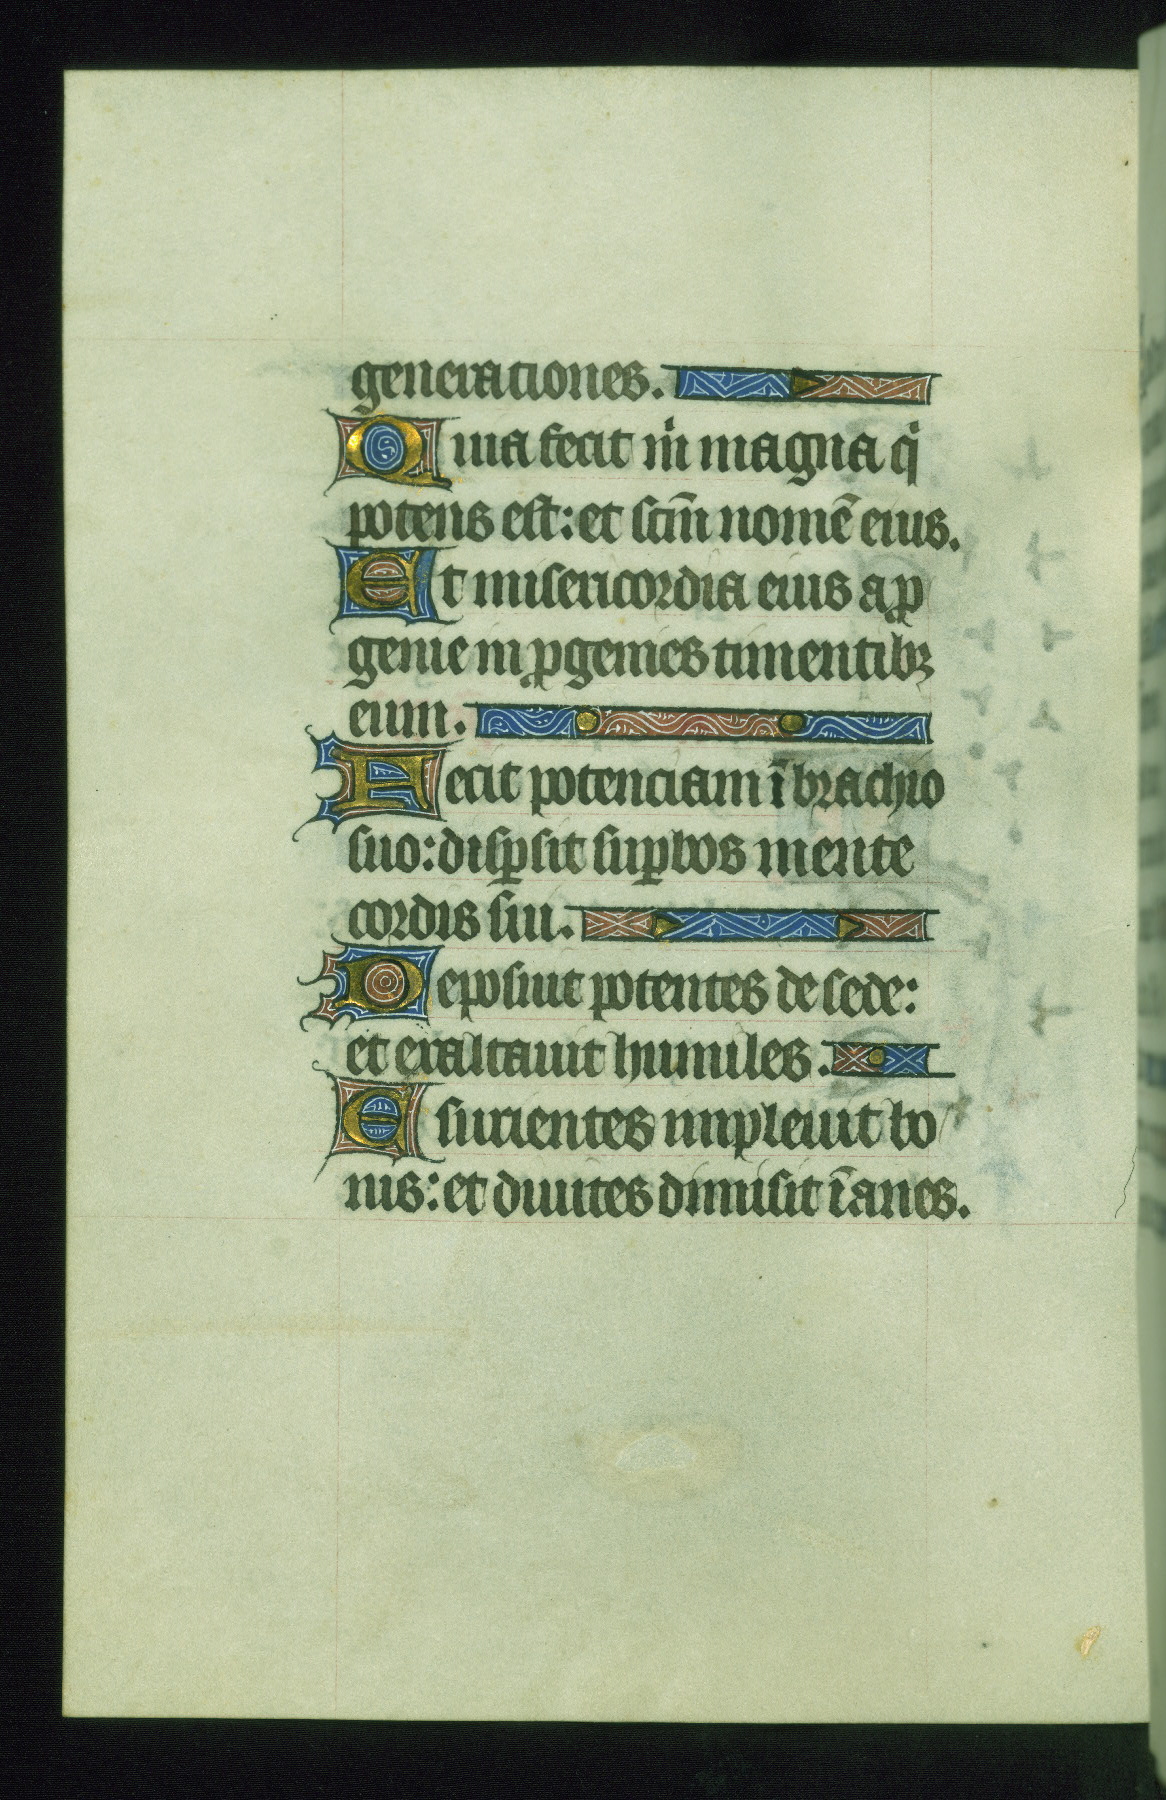 generationes.
Quia fecit m̍ magna q̍
potens est: et scm̄ nomē eius.
Et misericordia eius a ꝓ
genie in ꝓgenies timentibꝫ
eum.
Fecit potenciam ī brachio
suo: disꝑsit suꝑbos mente
cordis sui.
Deposuit potentes de sede:
et exaltauit humiles.
Esurientes impleuit bo
nis: et diuites dimisit īanes.